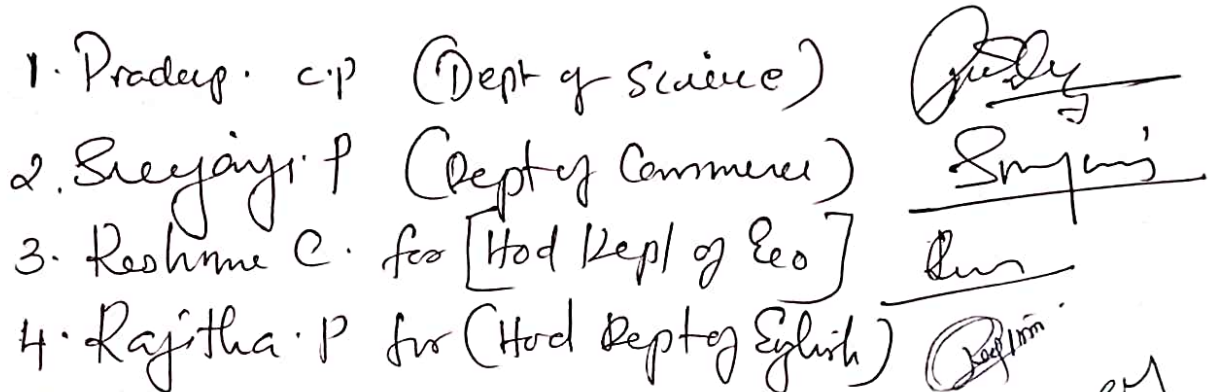 1. Pradeep. C.P (Dept of Science)
2. Sreejayi. P (Dept of Commerce)
3. Reshma C. for [Hod Dept of Eco]
4. Rajitha. P for (Hod Dept of English)